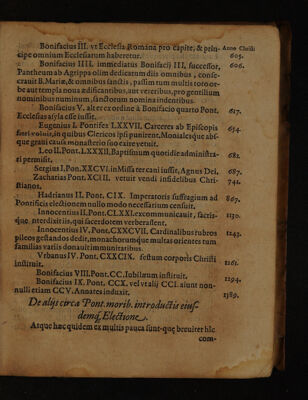 Bonifacius III. vt Ecclesia Romana pro capite, & prin-
Anno Christi
cipe omnium Ecclesiarum haberetur.
605.
Bonifacius IIII. immediatus Bonifacij III, successor,
606.
Pantheum ab Agrippa olim dedicatum diis omnibus, conse-
crauit B. Mariæ, & omnibus sanctis, passim tum multis toto or-
be aut templa noua ædificantibus, aut veteribus, pro gentilium
nominibus numinum, sanctorum nomina indentibus.
Bonifacius V. alter ex ordine à Bonifacio quarto Pont.
617.
Ecclesias asyla esse iussit.
Eugenius I. Pontifex LXXVII. Carceres ab Episcopis
654.
fieri voluit, in quibus Clericos ipsi punirent, Monialesque abs-
que graui causa monasterio suo exire vetuit.
Leo II. Pont. LXXXII. Baptismum quotidie administra-
682.
ri permisit.
Sergius I. Pon. XXCVI. in Missa ter cani iussit, Agnus Dei,
687.
Zacharias Pont. XCIII. vetuit vendi infidelibus Chri-
741.
stianos.
Hadrianus II. Pont. CIX. Imperatoris suffragium ad
867.
Pontificis electionem nullo modo necessarium censuit.
Innocentius II. Pont. CLXXI. excommunicauit, sacris-
1130.
que interdixit iis, qui sacerdotem verberassent.
Innocentius IV. Pont. CXXCVII. Cardinalibus rubros
1243.
pileos gestandos dedit, monachorumque multas orientes tum
familias variis donauit immunitatibus.
Vrbanus IV. Pont. CXXCIX. festum corporis Christi
1261.
instituit.
Bonifacius VIII. Pont. CC. Iobilæum instituit.
1294.
Bonifacius IX. Pont. CCX. vel vt alij CCI. aiunt non-
1389.
nulli etiam CCV. Annates induxit.
De alijs circa Pont. morib. introductis eius-
demq, Electione.
Atque hæc quidem ex multis pauca sunt-quę breuiter hîc
com-